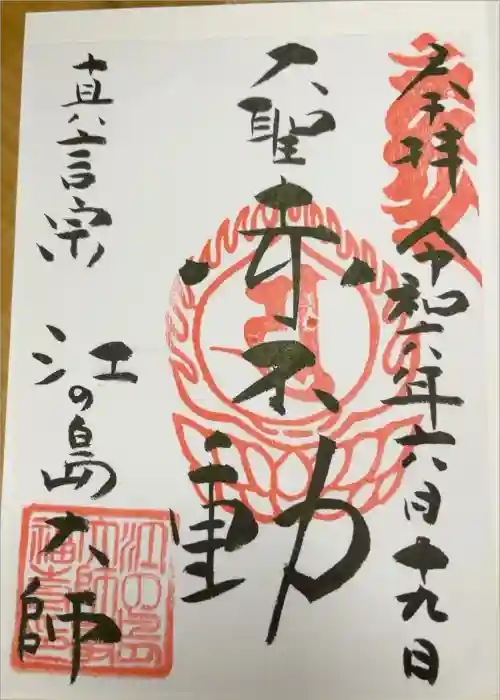 奉拝 令和六年六月十九日
大聖赤不動
真言宗 江の島大師